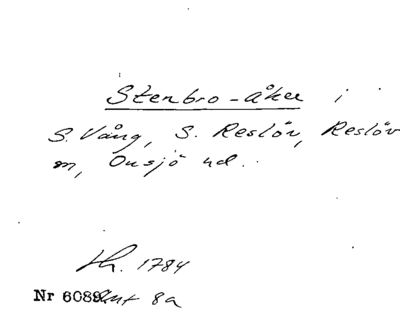 Stenbro-åker i
S. Vång, S. Reslöv, Reslöv
m, Onsjö hd.
Lh. 1784
Nr 6089 Akt 8a